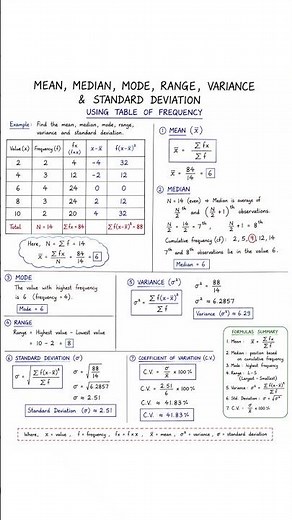 MEAN, MEDIAN, MODE, RANGE, VARIANCE
& STANDARD DEVIATION
USING TABLE OF FREQUENCY
Example: Find the mean, median, mode, range,
variance and standard deviation.
Value (x) Frequency (f) fx (f×x) x - x̄ f(x-x̄)²
2 2 4 -4 32
4 3 12 -2 12
6 4 24 0 0
8 3 24 2 12
10 2 20 4 32
Total N = 14 Σfx = 84 Σf(x-x̄)² = 88
Here, N = Σf = 14
x̄ = Σfx / N = 84 / 14 = 6
① MEAN (x̄)
x̄ = Σfx / Σf
x̄ = 84 / 14 = 6
② MEDIAN
N = 14 (even) → Median is average of
N/2 th and (N/2 + 1)th observations.
N/2 = 14/2 = 7th, N/2 + 1 = 8th
Cumulative frequency (cf) : 2, 5, 9, 12, 14
7th and 8th observations lie in the value 6.
Median = 6
③ MODE
The value with highest frequency
is 6 (frequency = 4).
Mode = 6
④ RANGE
Range = Highest value - Lowest value
= 10 - 2 = 8
⑤ VARIANCE (σ²)
σ² = Σf(x-x̄)² / Σf
σ² = 88 / 14
σ² = 6.2857
Variance (σ²) ≈ 6.29
⑥ STANDARD DEVIATION (σ)
σ = √(Σf(x-x̄)² / Σf)
σ = √(88 / 14)
σ = √6.2857
σ ≈ 2.51
Standard Deviation (σ) ≈ 2.51
⑦ COEFFICIENT OF VARIATION (C.V.)
C.V. = σ / x̄ × 100%
C.V. = 2.51 / 6 × 100%
C.V. ≈ 41.83%
C.V. ≈ 41.83%
FORMULAS SUMMARY
1. Mean : x̄ = Σfx / Σf
2. Median : position based
on cumulative frequency
3. Mode : highest frequency
4. Range : L - S
(Largest - Smallest)
5. Variance : σ² = Σf(x-x̄)² / Σf
6. Std. Deviation : σ = √σ²
7. C.V. = σ / x̄ × 100%
Where, x = value, f = frequency, fx = f × x, x̄ = mean, σ² = variance, σ = standard deviation